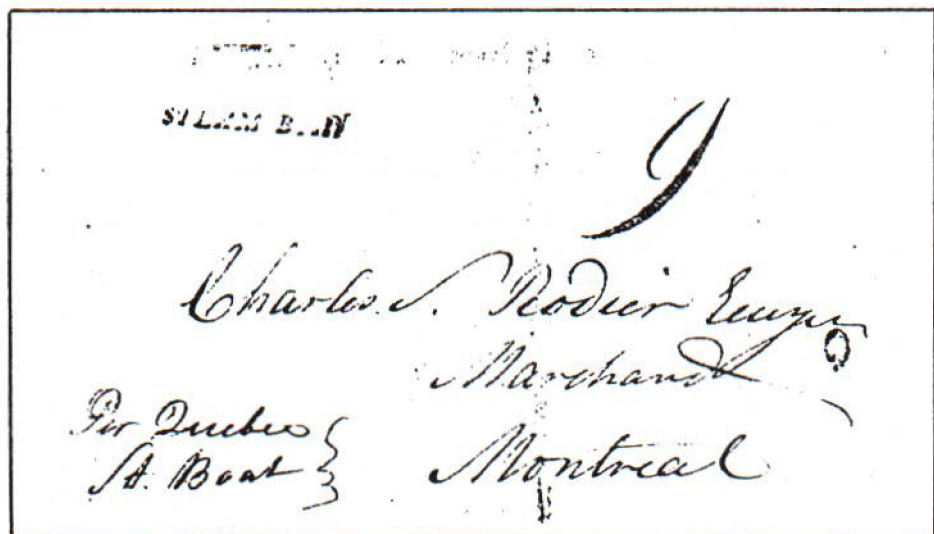 STEAM BOAT
9
Charles. S. Rodier Ecuyer
Marchand
Montreal
Per Quebec
St. Boat